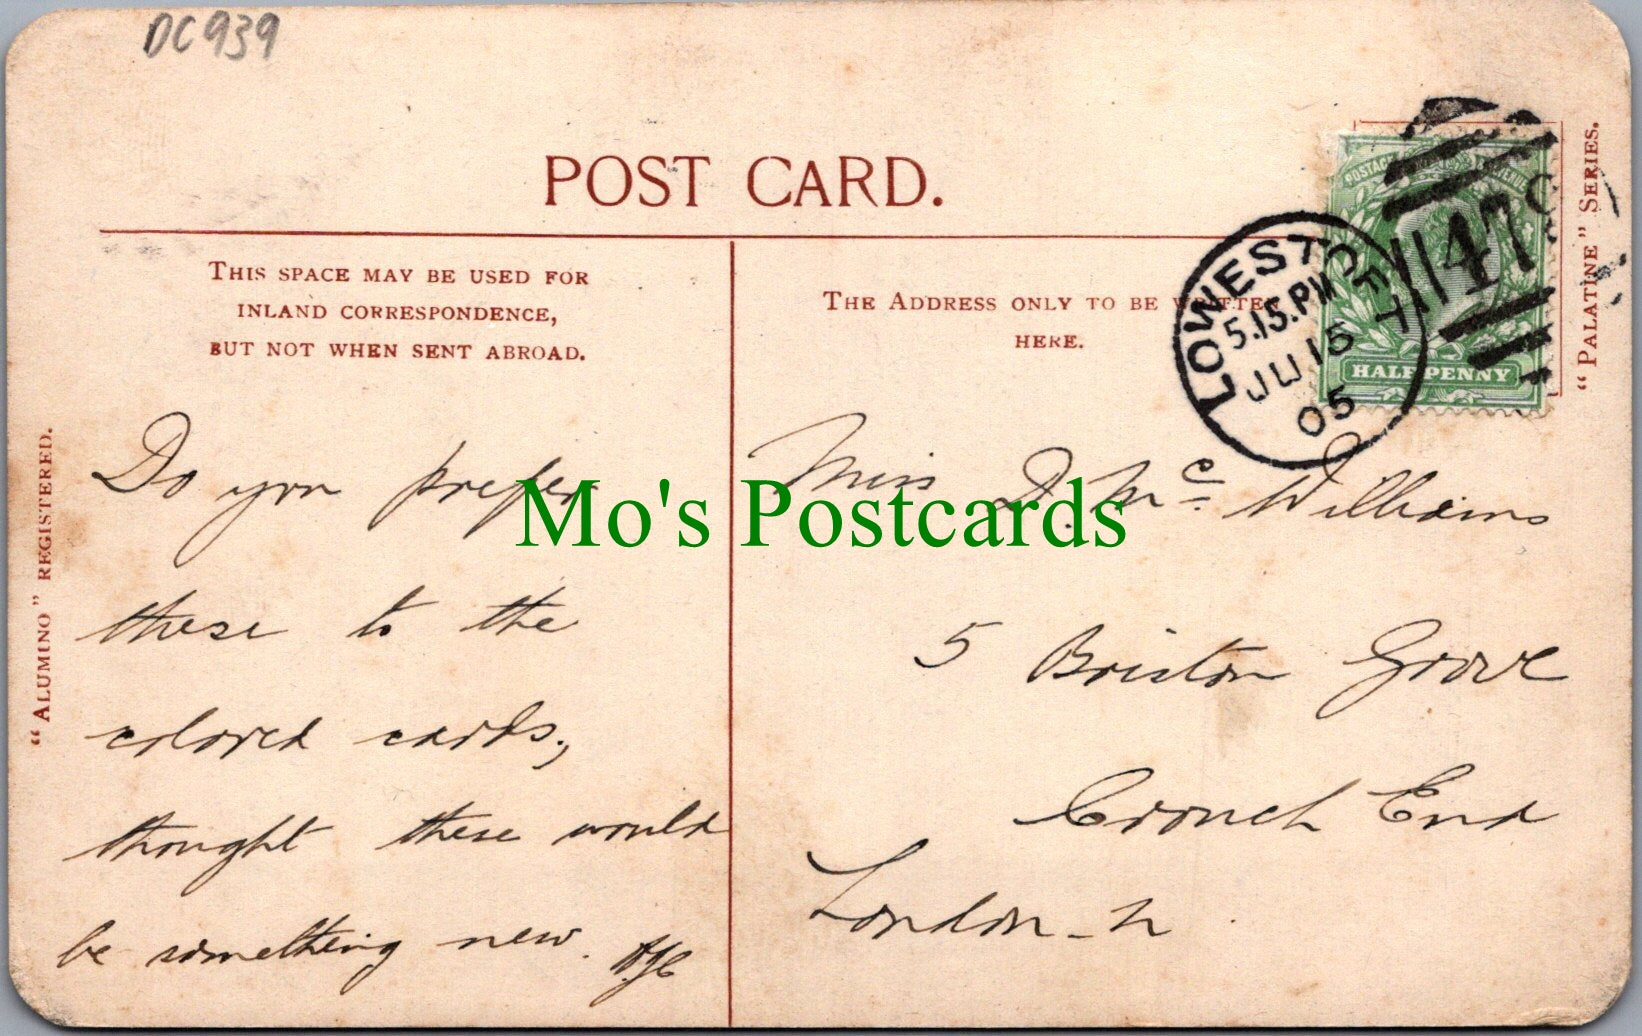 DC939
POST CARD.
THIS SPACE MAY BE USED FOR
INLAND CORRESPONDENCE,
BUT NOT WHEN SENT ABROAD.
THE ADDRESS ONLY TO BE WRITTEN
HERE.
"ALUMINO" REGISTERED.
"PALATINE" SERIES.
LOWESTOFT
5.15.PM
JU 15
05
HALFPENNY
Do you prefer
these to the
colored cards,
thought these would
be something new.
Miss D. Mc Williams
5 Briston Grove
Crouch End
London - N
Mo's Postcards